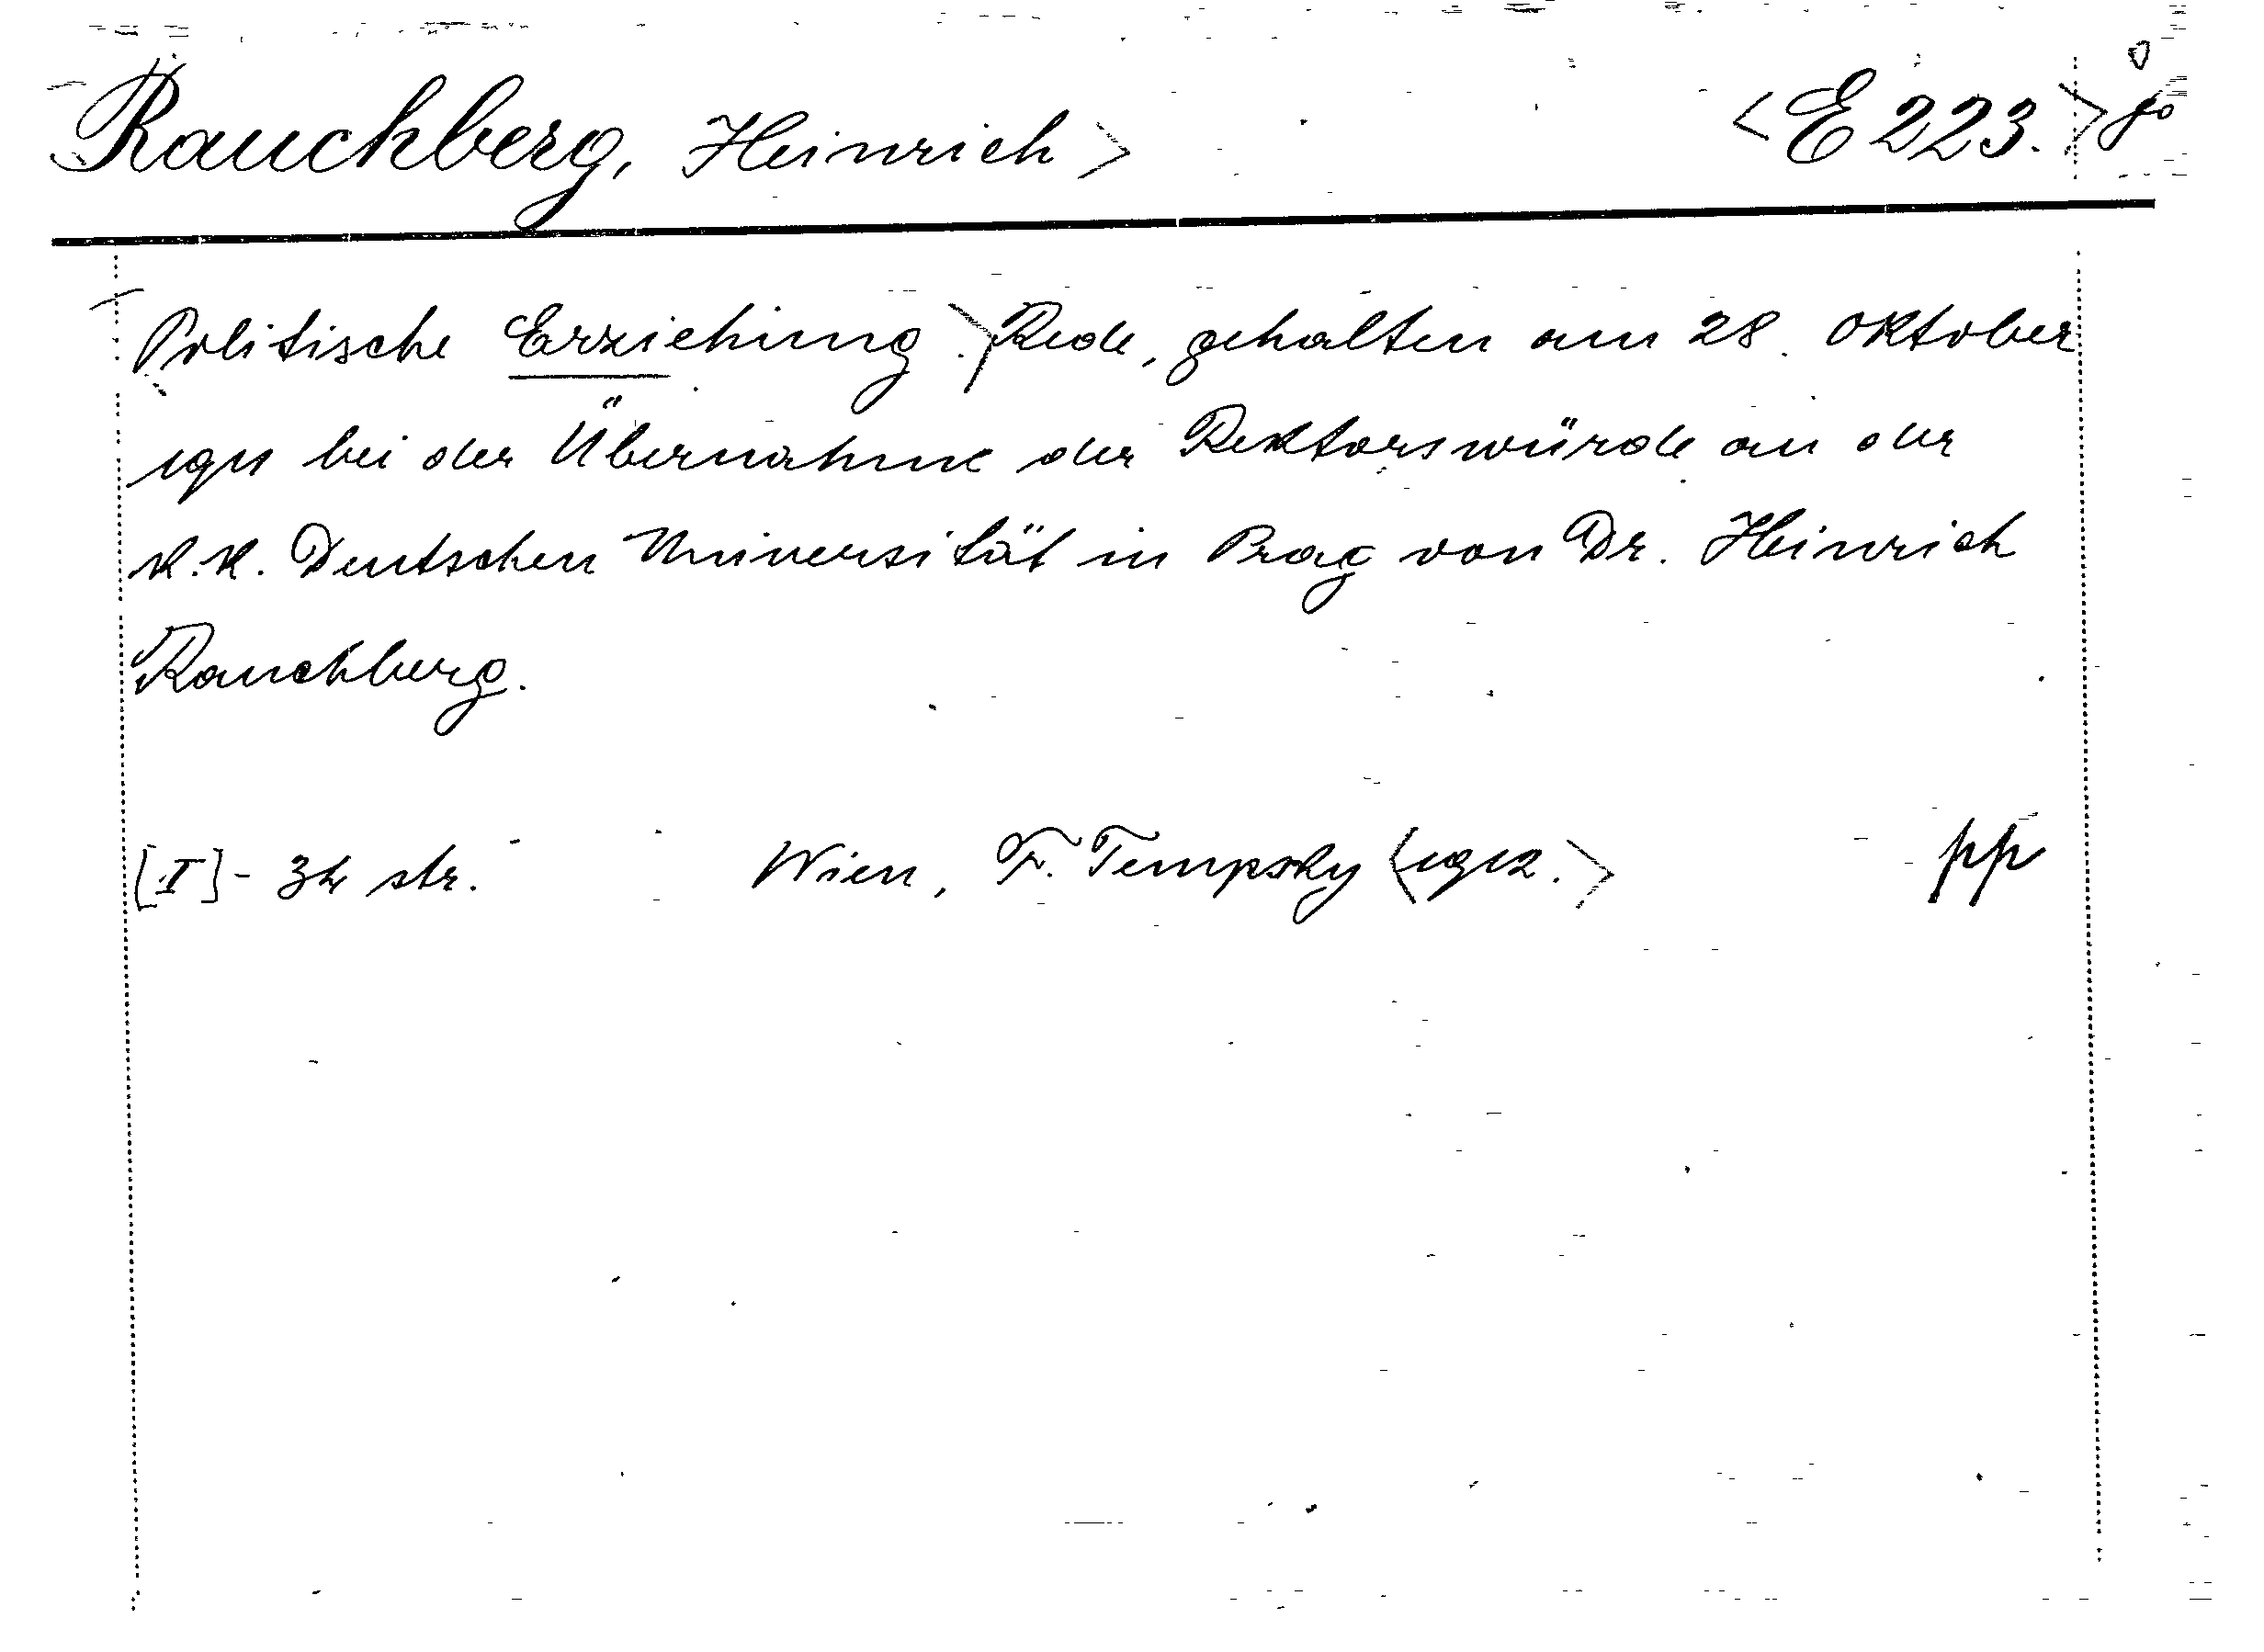 Rauchberg, Heinrich> <E 223.> 8°
Politische Erziehung.> Rede, gehalten am 28. Oktober
1911 bei der Übernahme der Rektorswürde an der
k.k. Deutschen Universität in Prag von Dr. Heinrich
Rauchberg.
[I]- str. Wien, F. Tempsky <1912.> pp